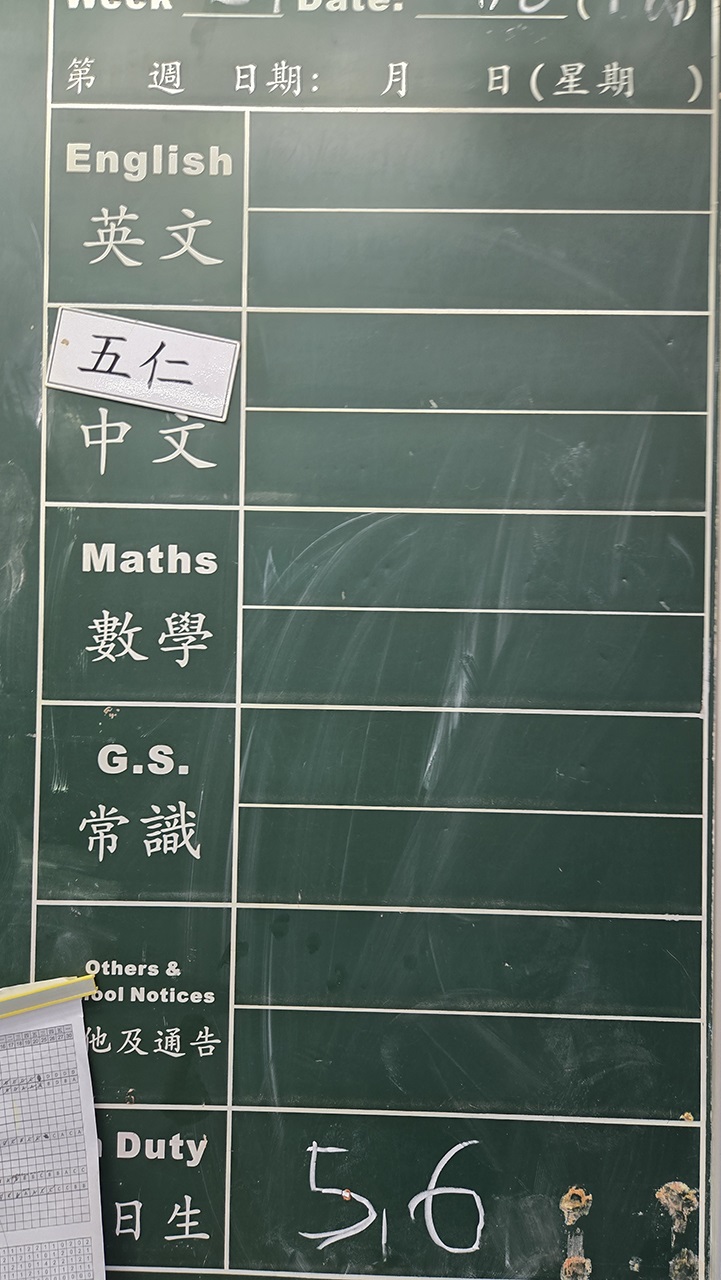 Week Date: (
第 週 日期: 月 日(星期 )
English
英文
五仁
中文
Maths
數學
G.S.
常識
Others &
ool Notices
他及通告
Duty
日生
5,6